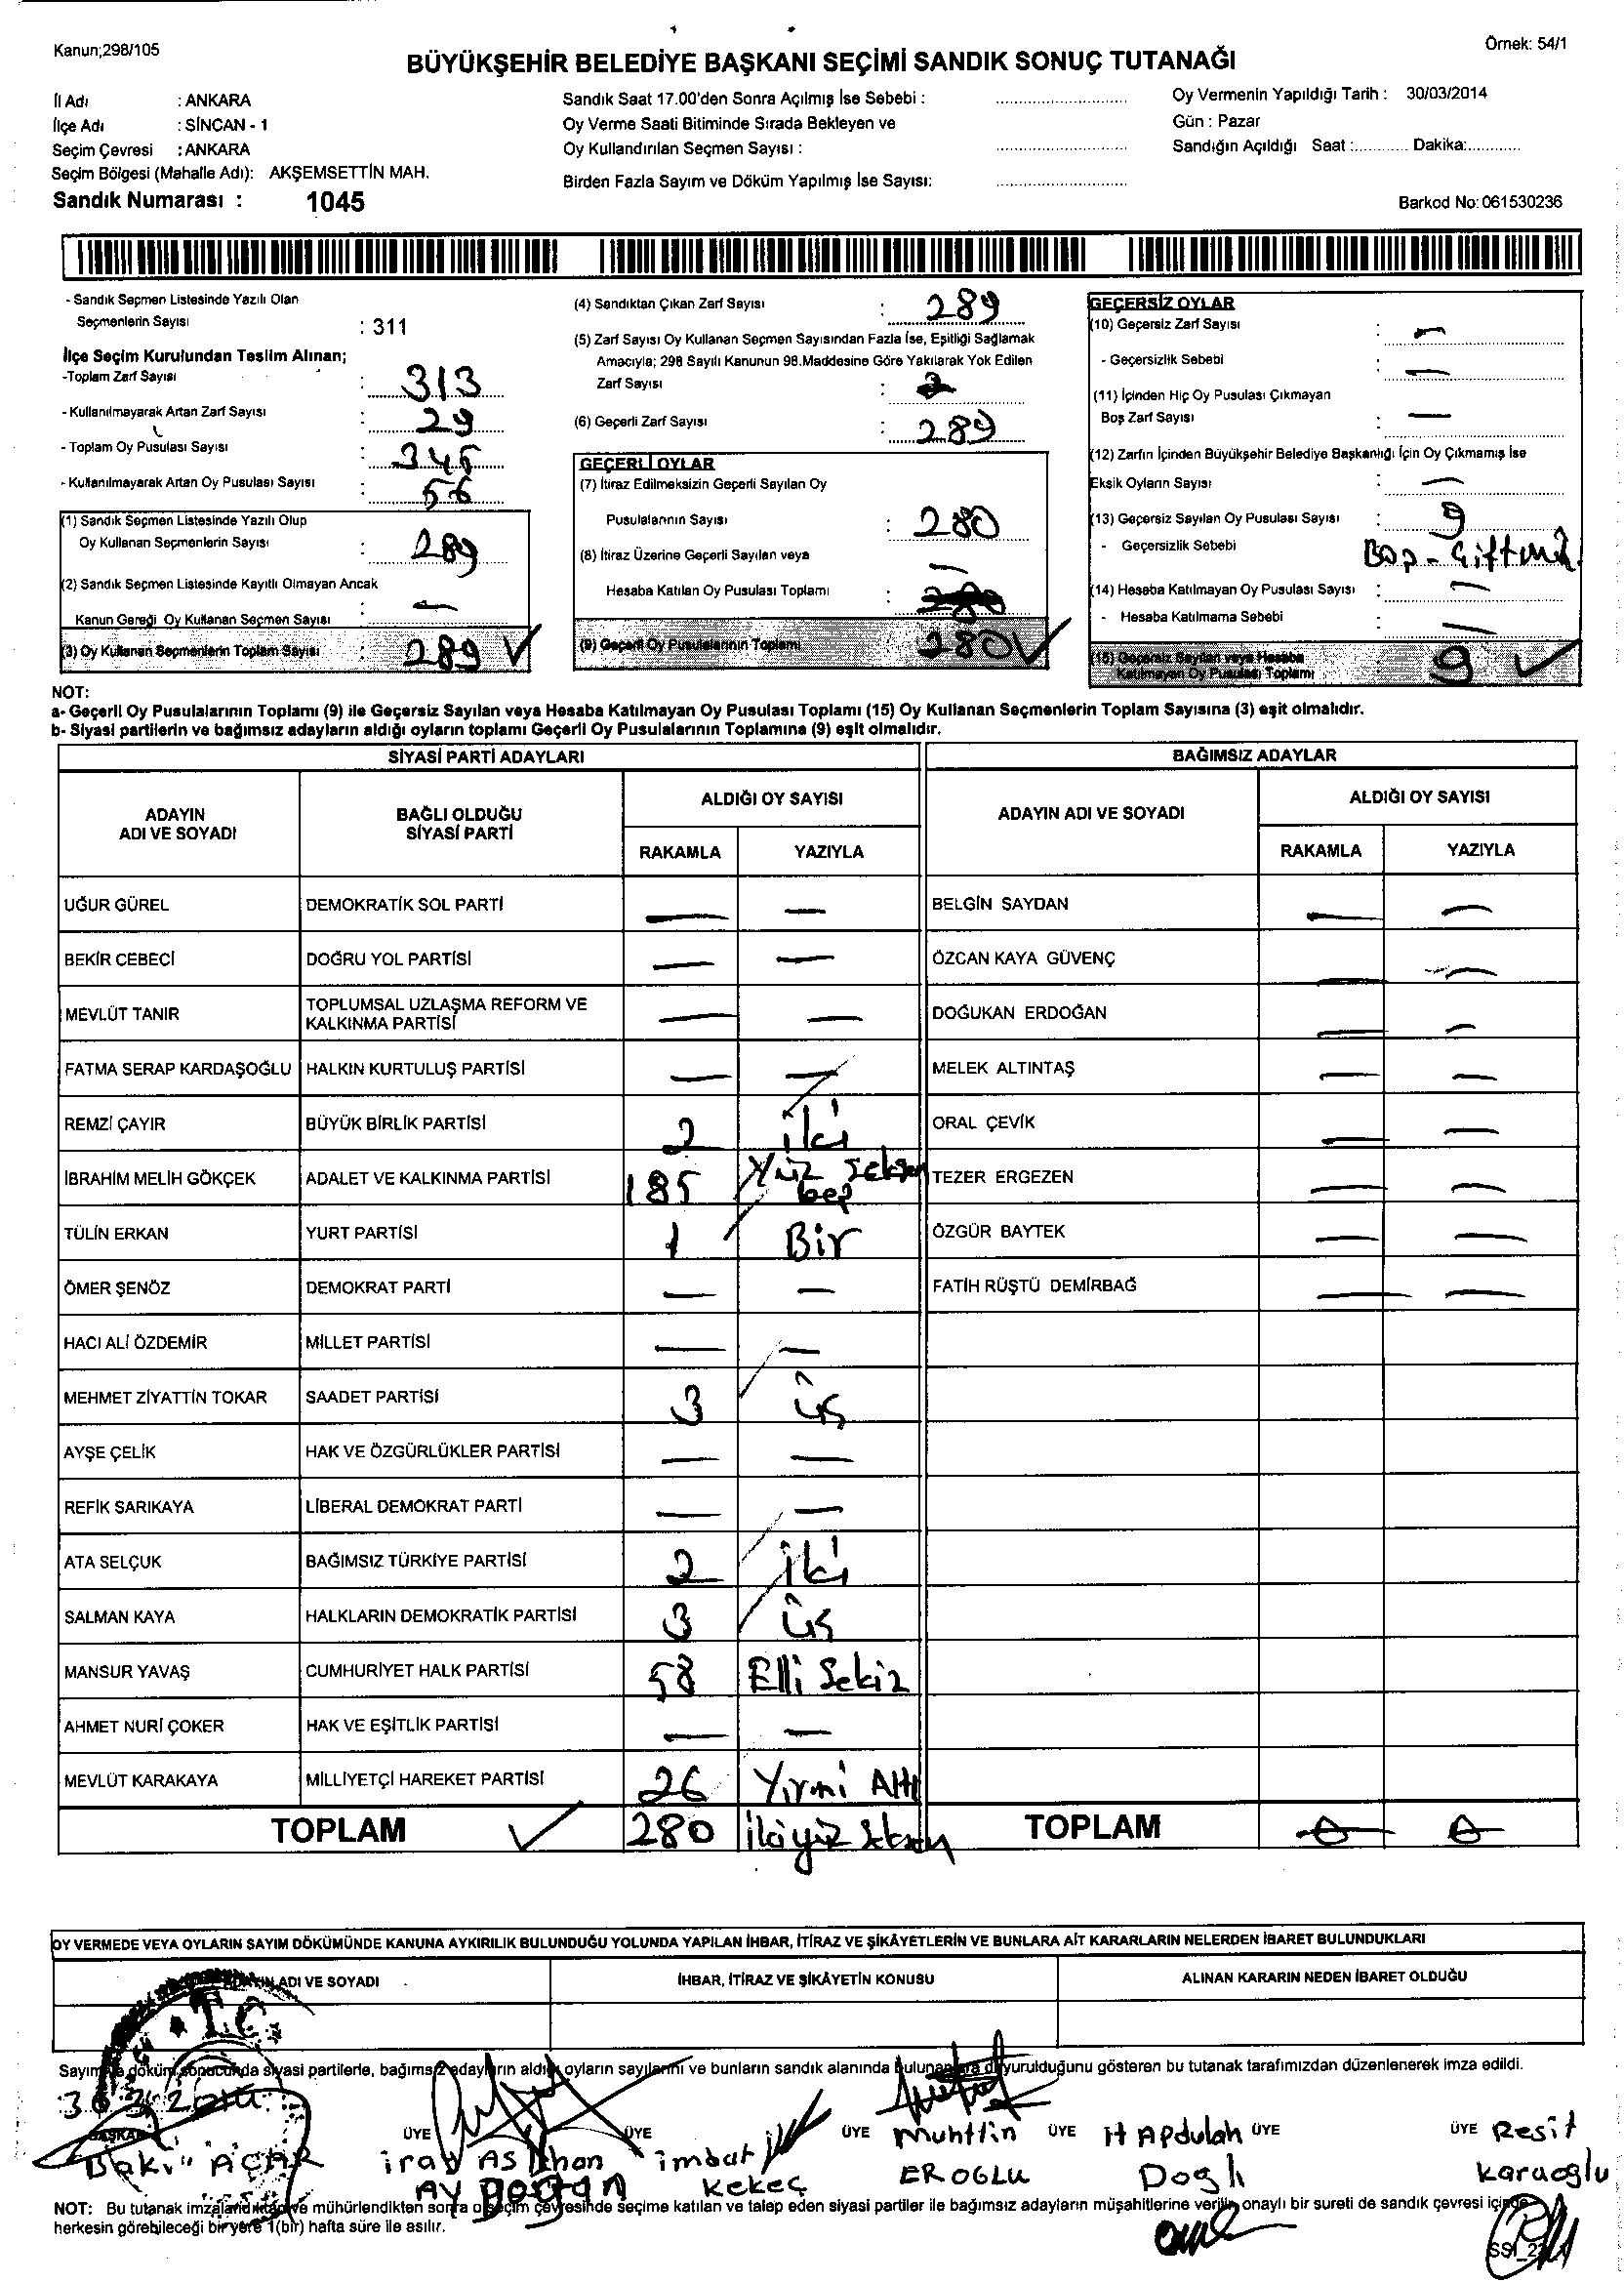 Kanun;298/105
Örnek: 54/1
BÜYÜKŞEHİR BELEDİYE BAŞKANI SEÇİMİ SANDIK SONUÇ TUTANAĞI
İl Adı : ANKARA
İlçe Adı : SİNCAN - 1
Seçim Çevresi : ANKARA
Seçim Bölgesi (Mahalle Adı): AKŞEMSETTİN MAH.
Sandık Numarası : 1045
Sandık Saat 17.00'den Sonra Açılmış İse Sebebi :
Oy Verme Saati Bitiminde Sırada Bekleyen ve
Oy Kullandırılan Seçmen Sayısı :
Birden Fazla Sayım ve Döküm Yapılmış İse Sayısı:
Oy Vermenin Yapıldığı Tarih : 30/03/2014
Gün : Pazar
Sandığın Açıldığı Saat :........... Dakika:...........
Barkod No: 061530236
- Sandık Seçmen Listesinde Yazılı Olan
Seçmenlerin Sayısı : 311
İlçe Seçim Kurulundan Teslim Alınan;
-Toplam Zarf Sayısı : 313
- Kullanılmayarak Artan Zarf Sayısı : 29
- Toplam Oy Pusulası Sayısı : 345
- Kullanılmayarak Artan Oy Pusulası Sayısı : 56
(1) Sandık Seçmen Listesinde Yazılı Olup
Oy Kullanan Seçmenlerin Sayısı : 289
(2) Sandık Seçmen Listesinde Kayıtlı Olmayan Ancak
Kanun Gereği Oy Kullanan Seçmen Sayısı : —
(3) Oy Kullanan Seçmenlerin Toplam Sayısı : 289 ✓
(4) Sandıktan Çıkan Zarf Sayısı : 289
(5) Zarf Sayısı Oy Kullanan Seçmen Sayısından Fazla İse, Eşitliği Sağlamak
Amacıyla; 298 Sayılı Kanunun 98.Maddesine Göre Yakılarak Yok Edilen
Zarf Sayısı :
(6) Geçerli Zarf Sayısı : 289
GEÇERLİ OYLAR
(7) İtiraz Edilmeksizin Geçerli Sayılan Oy
Pusulalarının Sayısı : 280
(8) İtiraz Üzerine Geçerli Sayılan veya
Hesaba Katılan Oy Pusulası Toplamı : —
(9) Geçerli Oy Pusulalarının Toplamı 280 ✓
GEÇERSİZ OYLAR
(10) Geçersiz Zarf Sayısı : —
- Geçersizlik Sebebi : —
(11) İçinden Hiç Oy Pusulası Çıkmayan
Boş Zarf Sayısı : —
(12) Zarfın İçinden Büyükşehir Belediye Başkanlığı İçin Oy Çıkmamış İse
Eksik Oyların Sayısı : —
(13) Geçersiz Sayılan Oy Pusulası Sayısı : 9
- Geçersizlik Sebebi Boş -
(14) Hesaba Katılmayan Oy Pusulası Sayısı : —
- Hesaba Katılmama Sebebi —
(15) Geçersiz Sayılan veya Hesaba
Katılmayan Oy Pusulası Toplamı 9 ✓
NOT:
a- Geçerli Oy Pusulalarının Toplamı (9) ile Geçersiz Sayılan veya Hesaba Katılmayan Oy Pusulası Toplamı (15) Oy Kullanan Seçmenlerin Toplam Sayısına (3) eşit olmalıdır.
b- Siyasi partilerin ve bağımsız adayların aldığı oyların toplamı Geçerli Oy Pusulalarının Toplamına (9) eşit olmalıdır.
SİYASİ PARTİ ADAYLARI
ADAYIN ADI VE SOYADI BAĞLI OLDUĞU SİYASİ PARTİ ALDIĞI OY SAYISI
RAKAMLA YAZIYLA
UĞUR GÜREL DEMOKRATİK SOL PARTİ — —
BEKİR CEBECİ DOĞRU YOL PARTİSİ — —
MEVLÜT TANIR TOPLUMSAL UZLAŞMA REFORM VE KALKINMA PARTİSİ — —
FATMA SERAP KARDAŞOĞLU HALKIN KURTULUŞ PARTİSİ — —
REMZİ ÇAYIR BÜYÜK BİRLİK PARTİSİ 2 iki
İBRAHİM MELİH GÖKÇEK ADALET VE KALKINMA PARTİSİ 185 Yüz seksen beş
TÜLİN ERKAN YURT PARTİSİ 1 Bir
ÖMER ŞENÖZ DEMOKRAT PARTİ — —
HACI ALİ ÖZDEMİR MİLLET PARTİSİ — —
MEHMET ZİYATTİN TOKAR SAADET PARTİSİ 3 üç
AYŞE ÇELİK HAK VE ÖZGÜRLÜKLER PARTİSİ — —
REFİK SARIKAYA LİBERAL DEMOKRAT PARTİ — —
ATA SELÇUK BAĞIMSIZ TÜRKİYE PARTİSİ 2 iki
SALMAN KAYA HALKLARIN DEMOKRATİK PARTİSİ 3 üç
MANSUR YAVAŞ CUMHURİYET HALK PARTİSİ 58 Elli Sekiz
AHMET NURİ ÇOKER HAK VE EŞİTLİK PARTİSİ — —
MEVLÜT KARAKAYA MİLLİYETÇİ HAREKET PARTİSİ 26 Yirmi Altı
TOPLAM ✓ 280 ikiyüz seksen
BAĞIMSIZ ADAYLAR
ADAYIN ADI VE SOYADI ALDIĞI OY SAYISI
RAKAMLA YAZIYLA
BELGİN SAYDAN — —
ÖZCAN KAYA GÜVENÇ — —
DOĞUKAN ERDOĞAN — —
MELEK ALTINTAŞ — —
ORAL ÇEVİK — —
TEZER ERGEZEN — —
ÖZGÜR BAYTEK — —
FATİH RÜŞTÜ DEMİRBAĞ — —
TOPLAM 0 0
OY VERMEDE VEYA OYLARIN SAYIM DÖKÜMÜNDE KANUNA AYKIRILIK BULUNDUĞU YOLUNDA YAPILAN İHBAR, İTİRAZ VE ŞİKÂYETLERİN VE BUNLARA AİT KARARLARIN NELERDEN İBARET BULUNDUKLARI
ADI VE SOYADI İHBAR, İTİRAZ VE ŞİKÂYETİN KONUSU ALINAN KARARIN NEDEN İBARET OLDUĞU
T.C.
Sayım ve döküm sonucunda siyasi partilerle, bağımsız adayların aldığı oyların sayılarını ve bunların sandık alanında bulunanlara duyurulduğunu gösteren bu tutanak tarafımızdan düzenlenerek imza edildi.
30.3.2014
BAŞKAN ÜYE ÜYE ÜYE ÜYE ÜYE ÜYE
Baki AÇAR
imbat Kekeç
Muhttin EROGLU
H Apdulah Doglı
Resit Karaoglu
NOT: Bu tutanak imzalandıktan ve mühürlendikten sonra o seçim çevresinde seçime katılan ve talep eden siyasi partiler ile bağımsız adayların müşahitlerine verilir, onaylı bir sureti de sandık çevresi içinde
herkesin görebileceği bir yere 1(bir) hafta süre ile asılır.